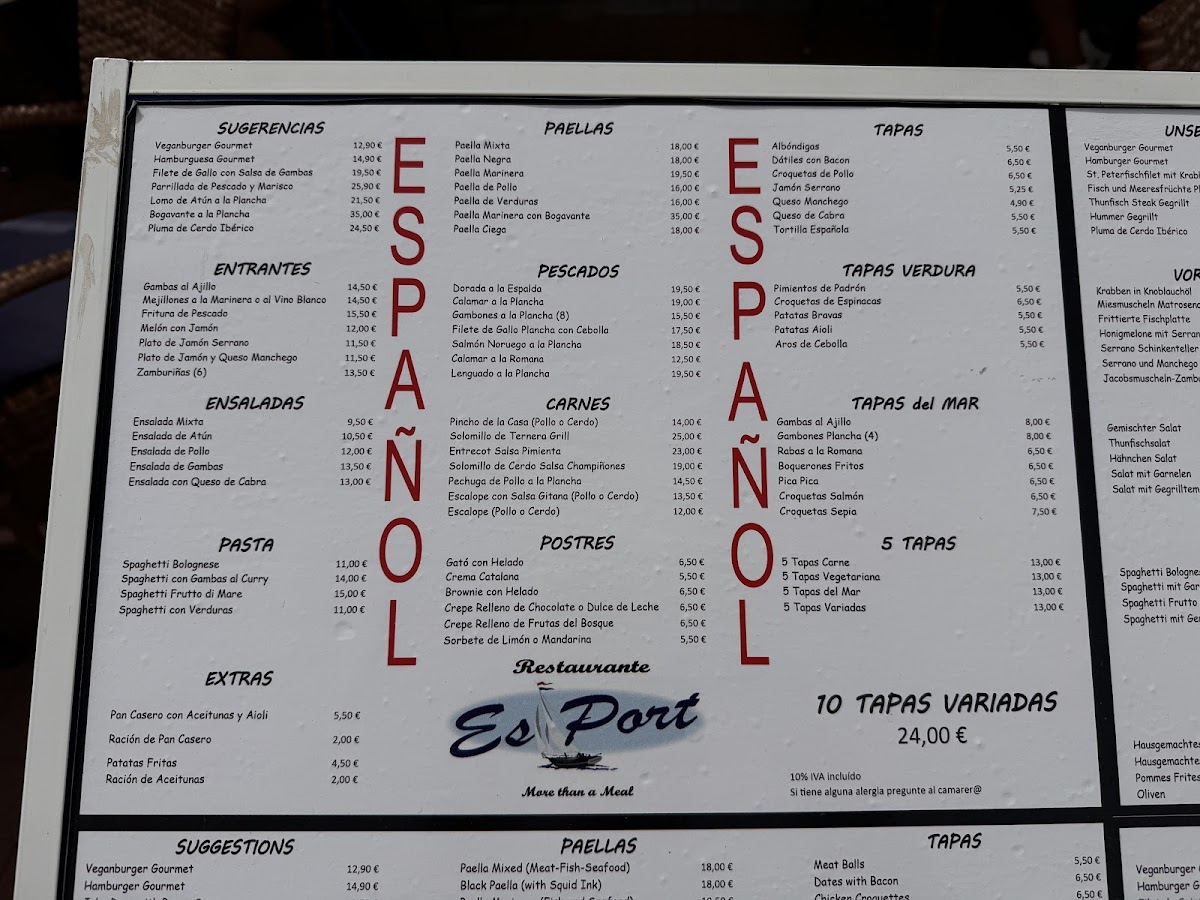 SUGERENCIAS
Veganburger Gourmet 12,90 €
Hamburguesa Gourmet 14,90 €
Filete de Gallo con Salsa de Gambas 19,50 €
Parrillada de Pescado y Marisco 25,90 €
Lomo de Atún a la Plancha 21,50 €
Bogavante a la Plancha 35,00 €
Pluma de Cerdo Ibérico 24,50 €
ENTRANTES
Gambas al Ajillo 14,50 €
Mejillones a la Marinera o al Vino Blanco 14,50 €
Fritura de Pescado 15,50 €
Melón con Jamón 12,00 €
Plato de Jamón Serrano 11,50 €
Plato de Jamón y Queso Manchego 11,50 €
Zamburiñas (6) 13,50 €
ENSALADAS
Ensalada Mixta 9,50 €
Ensalada de Atún 10,50 €
Ensalada de Pollo 12,00 €
Ensalada de Gambas 13,50 €
Ensalada con Queso de Cabra 13,00 €
PASTA
Spaghetti Bolognese 11,00 €
Spaghetti con Gambas al Curry 14,00 €
Spaghetti Frutto di Mare 15,00 €
Spaghetti con Verduras 11,00 €
EXTRAS
Pan Casero con Aceitunas y Aioli 5,50 €
Ración de Pan Casero 2,00 €
Patatas Fritas 4,50 €
Ración de Aceitunas 2,00 €
ESPAÑOL
PAELLAS
Paella Mixta 18,00 €
Paella Negra 18,00 €
Paella Marinera 19,50 €
Paella de Pollo 16,00 €
Paella de Verduras 16,00 €
Paella Marinera con Bogavante 35,00 €
Paella Ciega 18,00 €
PESCADOS
Dorada a la Espalda 19,50 €
Calamar a la Plancha 19,00 €
Gambones a la Plancha (8) 15,50 €
Filete de Gallo Plancha con Cebolla 17,50 €
Salmón Noruego a la Plancha 18,50 €
Calamar a la Romana 12,50 €
Lenguado a la Plancha 19,50 €
CARNES
Pincho de la Casa (Pollo o Cerdo) 14,00 €
Solomillo de Ternera Grill 25,00 €
Entrecot Salsa Pimienta 23,00 €
Solomillo de Cerdo Salsa Champiñones 19,00 €
Pechuga de Pollo a la Plancha 14,50 €
Escalope con Salsa Gitana (Pollo o Cerdo) 13,50 €
Escalope (Pollo o Cerdo) 12,00 €
POSTRES
Gató con Helado 6,50 €
Crema Catalana 5,50 €
Brownie con Helado 6,50 €
Crepe Relleno de Chocolate o Dulce de Leche 6,50 €
Crepe Relleno de Frutas del Bosque 6,50 €
Sorbete de Limón o Mandarina 5,50 €
Restaurante
Es Port
More than a Meal
ESPAÑOL
TAPAS
Albóndigas 5,50 €
Dátiles con Bacon 6,50 €
Croquetas de Pollo 6,50 €
Jamón Serrano 5,25 €
Queso Manchego 4,90 €
Queso de Cabra 5,50 €
Tortilla Española 5,50 €
TAPAS VERDURA
Pimientos de Padrón 5,50 €
Croquetas de Espinacas 6,50 €
Patatas Bravas 5,50 €
Patatas Aioli 5,50 €
Aros de Cebolla 5,50 €
TAPAS del MAR
Gambas al Ajillo 8,00 €
Gambones Plancha (4) 8,00 €
Rabas a la Romana 6,50 €
Boquerones Fritos 6,50 €
Pica Pica 6,50 €
Croquetas Salmón 6,50 €
Croquetas Sepia 7,50 €
5 TAPAS
5 Tapas Carne 13,00 €
5 Tapas Vegetariana 13,00 €
5 Tapas del Mar 13,00 €
5 Tapas Variadas 13,00 €
10 TAPAS VARIADAS
24,00 €
10% IVA incluído
Si tiene alguna alergia pregunte al camarer@
UNSE
Veganburger Gourmet
Hamburger Gourmet
St. Peterfischfilet mit Krabb
Fisch und Meeresfrüchte Pl
Thunfisch Steak Gegrillt
Hummer Gegrillt
Pluma de Cerdo Ibérico
VOR
Krabben in Knoblauchöl
Miesmuscheln Matrosena
Frittierte Fischplatte
Honigmelone mit Serran
Serrano Schinkenteller
Serrano und Manchego
Jacobsmuscheln-Zambu
Gemischter Salat
Thunfischsalat
Hähnchen Salat
Salat mit Garnelen
Salat mit Gegrilltem
Spaghetti Bolognes
Spaghetti mit Gar
Spaghetti Frutto
Spaghetti mit Ge
Hausgemachtes
Hausgemachte
Pommes Frites
Oliven
SUGGESTIONS
Veganburger Gourmet 12,90 €
Hamburger Gourmet 14,90 €
PAELLAS
Paella Mixed (Meat-Fish-Seafood) 18,00 €
Black Paella (with Squid Ink) 18,00 €
TAPAS
Meat Balls 5,50 €
Dates with Bacon 6,50 €
Chicken Croquettes 6,50 €
Veganburger
Hamburger G